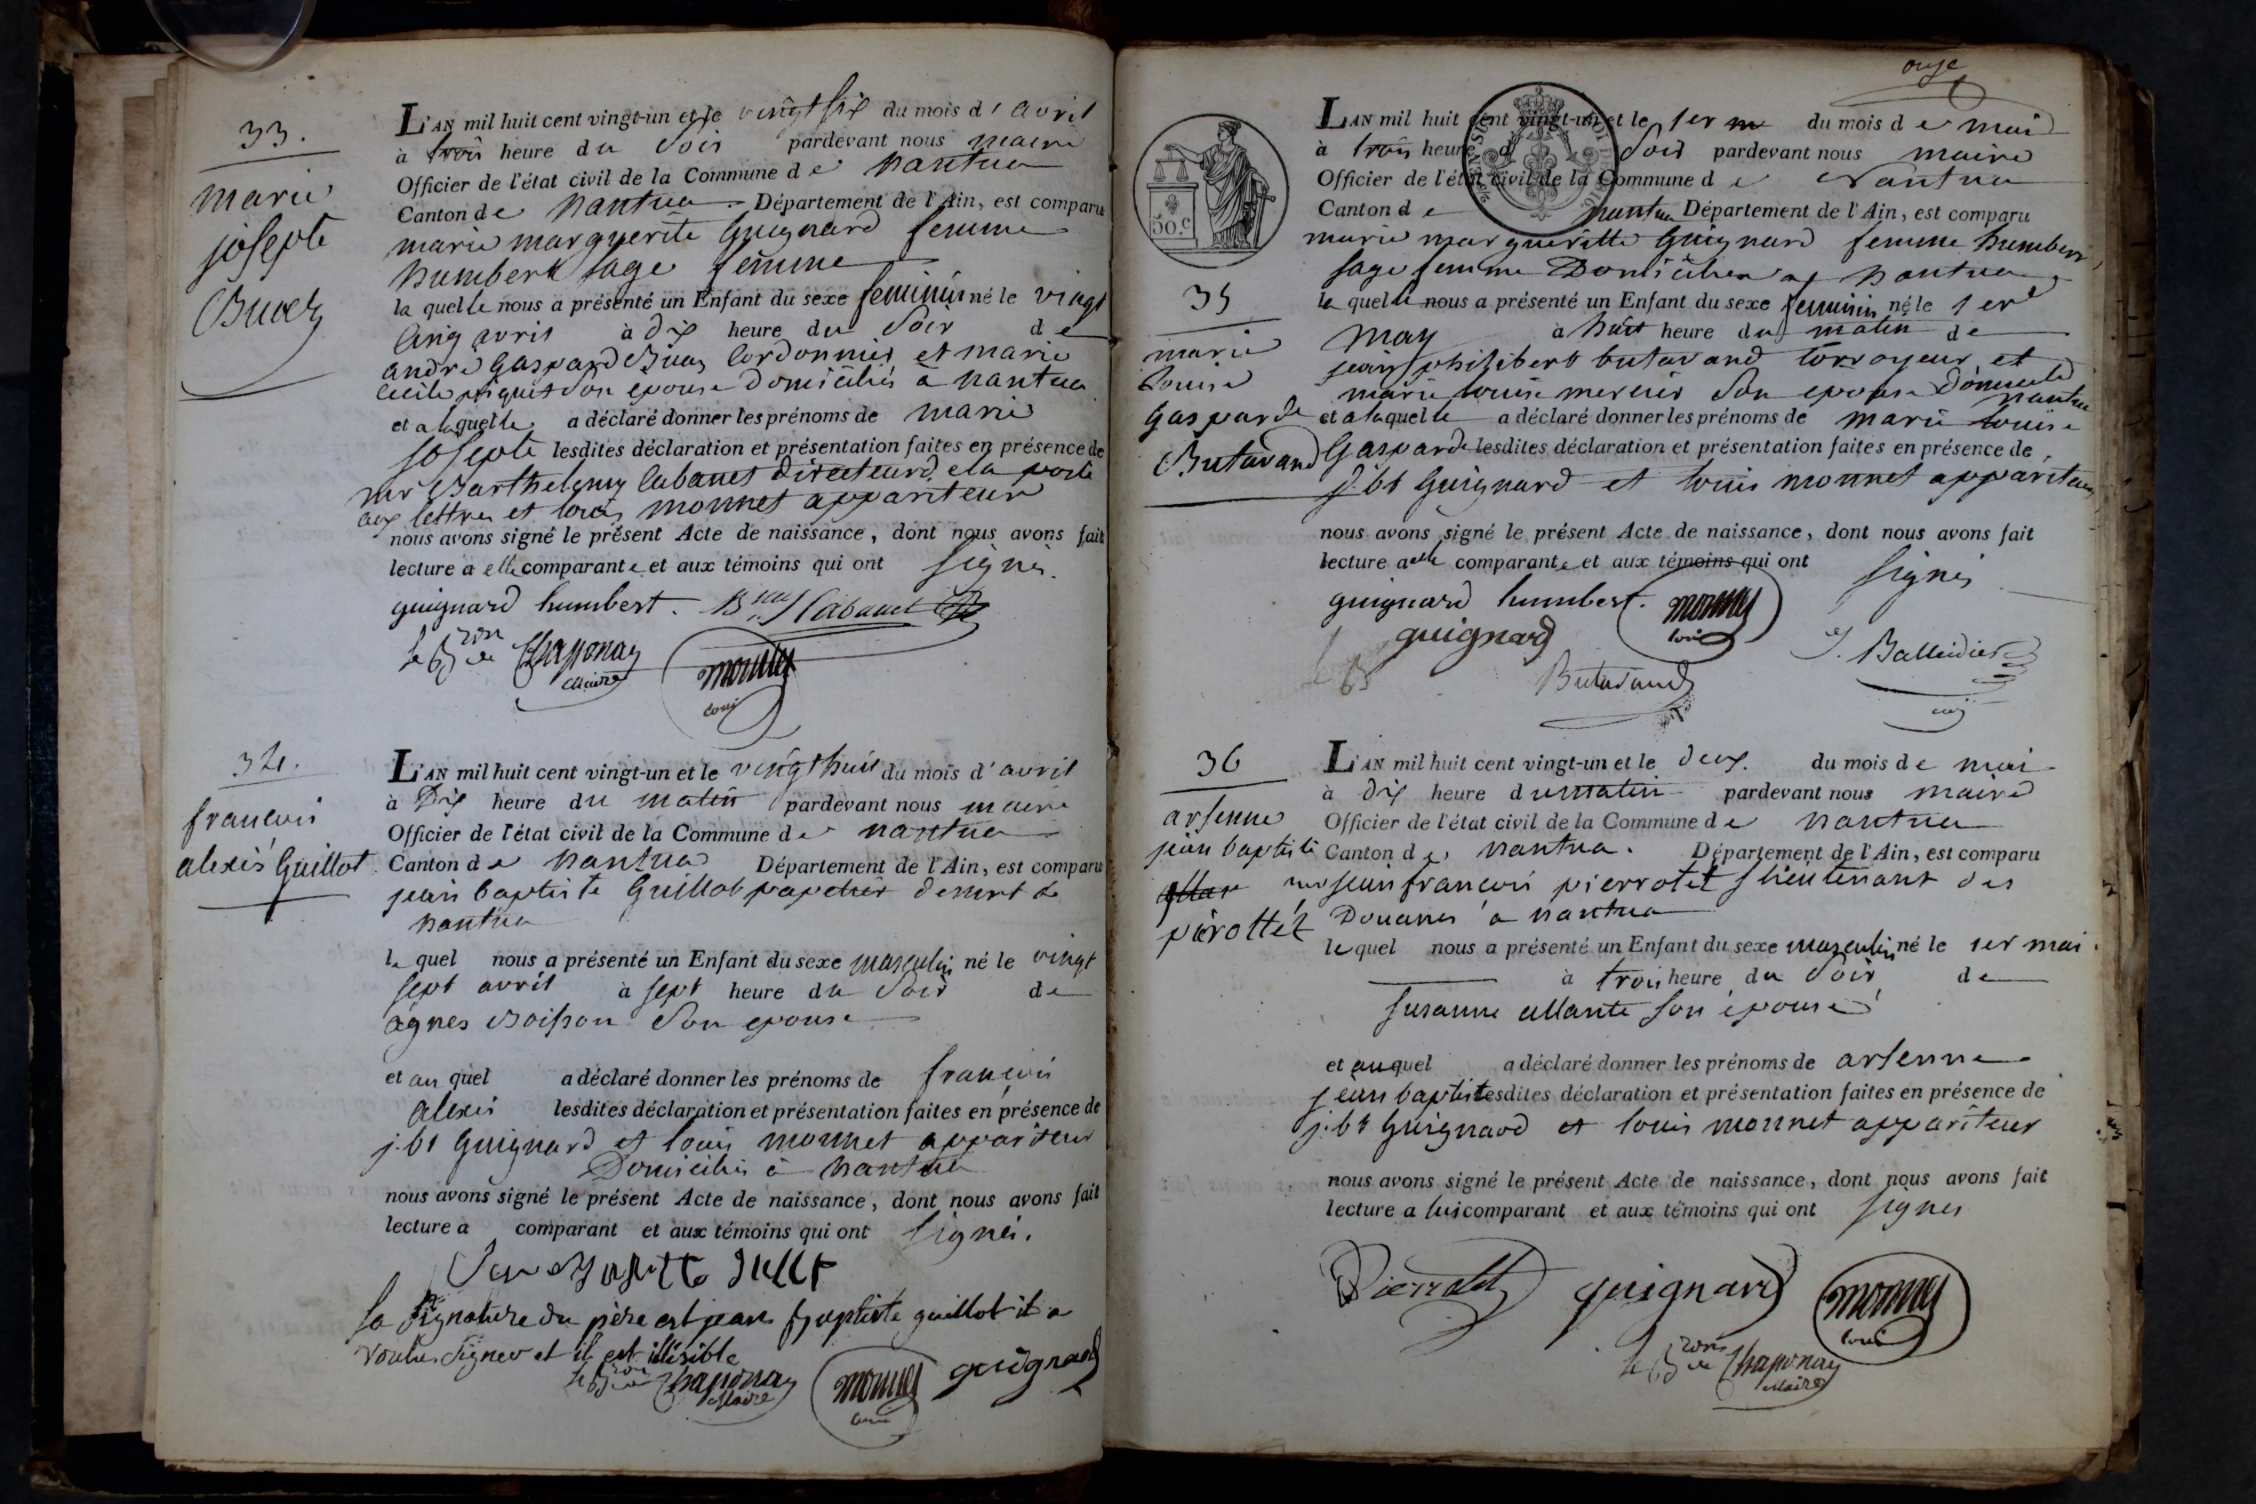 33.
marie
josephte
L'AN mil huit cent vingt-un et le vingt six du mois d'avril
à trois heure du Soir pardevant nous maire
Officier de l'état civil de la Commune de nantua
Canton de nantua Département de l'Ain, est comparu
marie marguerite Guignard femme
humbert sage femme
la quelle nous a présenté un Enfant du sexe feminin né le vingt
Cinq avril à dix heure du Soir de
andré Gaspard Cordonnier et marie
Cecile son epouse Domiciliés à nantua
et a laquelle a déclaré donner les prénoms de marie
josephte lesdites déclaration et présentation faites en présence de
mr Barthelemy Cabanet directeur de la poste
aux lettres et louis monnet appariteur
nous avons signé le présent Acte de naissance, dont nous avons fait
lecture a elle comparante et aux témoins qui ont signés.
guignard humbert. Cabanet
le Bron de Chaponay
Maire
monnet
louis
34.
francois
alexis Guillot
L'AN mil huit cent vingt-un et le vingt huit du mois d'avril
à Dix heure du matin pardevant nous maire
Officier de l'état civil de la Commune de nantua
Canton de nantua Département de l'Ain, est comparu
jean baptiste Guillot papetier demt à
nantua
le quel nous a présenté un Enfant du sexe masculin né le vingt
sept avril à sept heure du Soir de
agnes son epouse
et au quel a déclaré donner les prénoms de françois
alexis lesdites déclaration et présentation faites en présence de
j. bt Guignard et louis monnet appariteur
Domiciliés à nantua
nous avons signé le présent Acte de naissance, dont nous avons fait
lecture a comparant et aux témoins qui ont signés.
la signature du père est jean baptiste guillot il a
voulu signer et il est illisible
le Bron de Chaponay
Maire
monnet
louis
guignard
onze
50 c.
35
marie
louise
gasparde
Butavand
L'AN mil huit cent vingt-un et le 1er du mois de mai
à trois heure d Soir pardevant nous maire
Officier de l'état civil de la Commune de Nantua
Canton de nantua Département de l'Ain, est comparu
marie margueritte Guignard femme humbert
sage femme Domiciliée a nantua
la quelle nous a présenté un Enfant du sexe feminin né le 1er
may à huit heure du matin de
jean philibert butavand corroyeur et
marie louise mercier son epouse Domicilié
nantua
et a laquelle a déclaré donner les prénoms de marie louise
Gasparde lesdites déclaration et présentation faites en présence de
j. bt Guignard et louis monnet appariteur
nous avons signé le présent Acte de naissance, dont nous avons fait
lecture a elle comparante et aux témoins qui ont signés
guignard humbert. monnet
louis
guignard
Butavand
36
arsenne
jean baptiste
pierottet
L'AN mil huit cent vingt-un et le deux. du mois de mai
à dix heure du matin pardevant nous maire
Officier de l'état civil de la Commune de nantua
Canton de nantua. Département de l'Ain, est comparu
mr jean françois pierrotet s lieutenant des
Douanes a nantua
le quel nous a présenté un Enfant du sexe masculin né le 1er mai
à trois heure du Soir de
susanne allante son épouse
et au quel a déclaré donner les prénoms de arsenne
jean baptiste lesdites déclaration et présentation faites en présence de
j. bt Guignard et louis monnet appariteur
nous avons signé le présent Acte de naissance, dont nous avons fait
lecture a lui comparant et aux témoins qui ont signés
guignard monnet
louis
le Bron de Chaponay
Maire